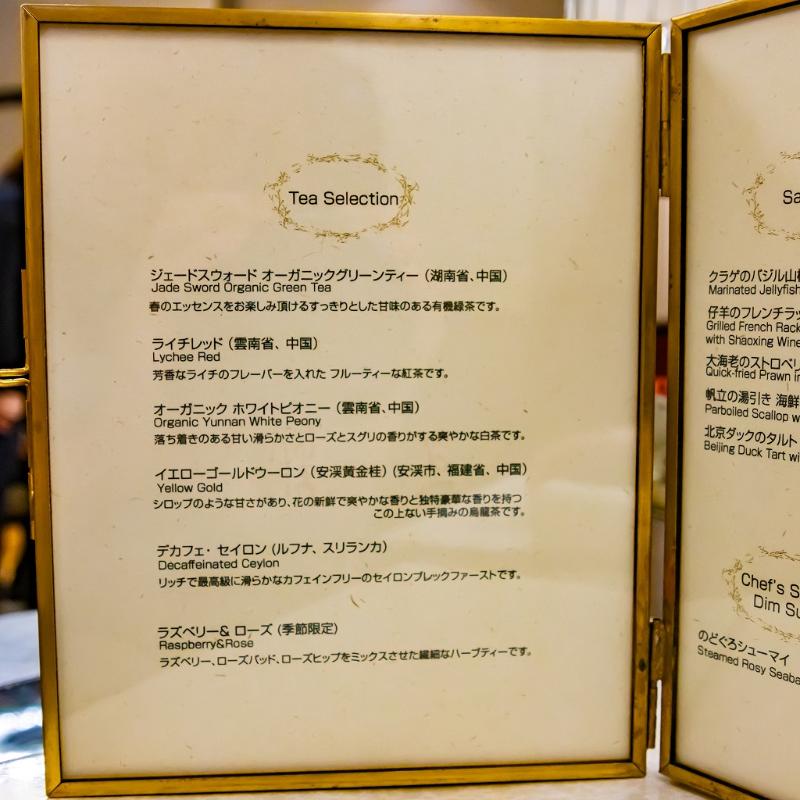 Tea Selection
ジェードスウォード オーガニックグリーンティー（湖南省、中国）
Jade Sword Organic Green Tea
春のエッセンスをお楽しみ頂けるすっきりとした甘味のある有機緑茶です。
ライチレッド（雲南省、中国）
Lychee Red
芳香なライチのフレーバーを入れた フルーティーな紅茶です。
オーガニック ホワイトピオニー（雲南省、中国）
Organic Yunnan White Peony
落ち着きのある甘い滑らかさとローズとスグリの香りがする爽やかな白茶です。
イエローゴールドウーロン（安渓黄金桂）（安渓市、福建省、中国）
Yellow Gold
シロップのような甘さがあり、花の新鮮で爽やかな香りと独特豪華な香りを持つ
この上ない手摘みの烏龍茶です。
デカフェ・セイロン（ルフナ、スリランカ）
Decaffeinated Ceylon
リッチで最高級に滑らかなカフェインフリーのセイロンブレックファーストです。
ラズベリー& ローズ（季節限定）
Raspberry&Rose
ラズベリー、ローズバッド、ローズヒップをミックスさせた繊細なハーブティーです。
Sa
クラゲのバジル山
Marinated Jellyfish
仔羊のフレンチラッ
Grilled French Rack
with Shaoxing Wine
大海老のストロベリ
Quick-fried Prawn in
帆立の湯引き 海鮮
Parboiled Scallop w
北京ダックのタルト
Beijing Duck Tart wi
Chef's S
Dim Su
のどぐろシューマイ
Steamed Rosy Seaba